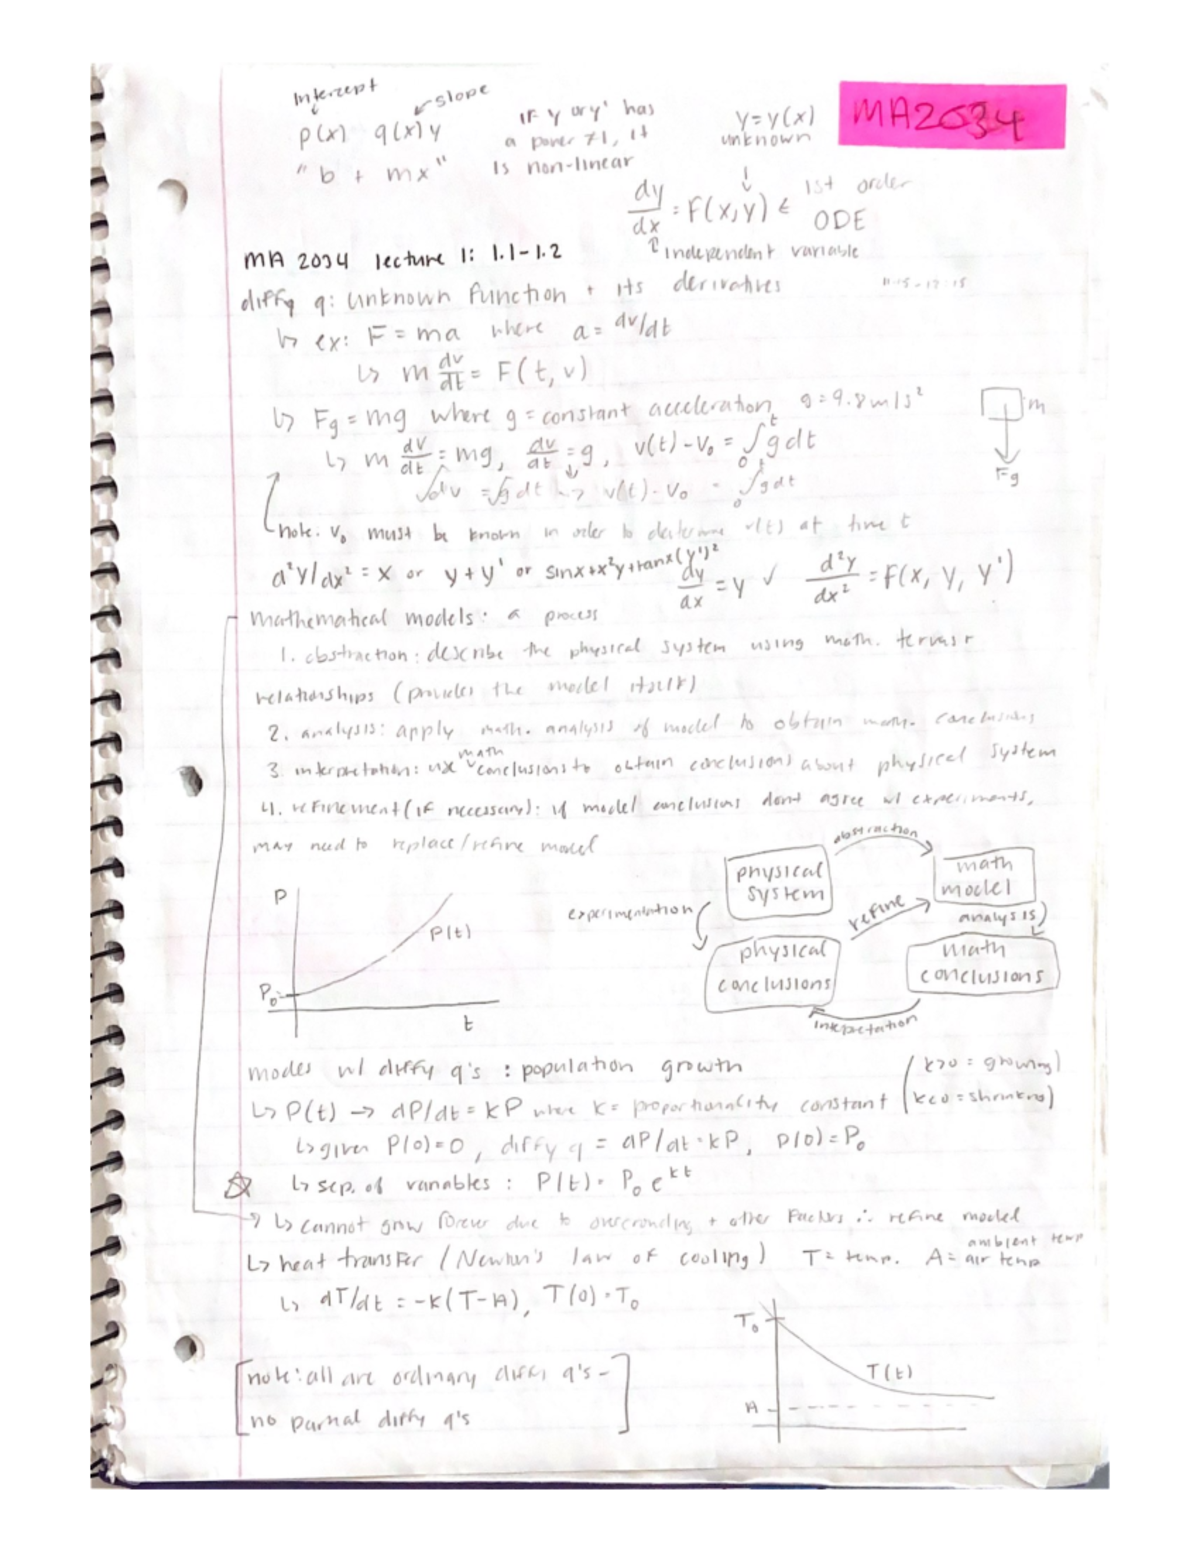 Intercept
slope
p(x) q(x)y
"b + mx"
IF y or y' has
a power ≠1, it
is non-linear
y=y(x)
unknown
MA2034
dy/dx = F(x,y) ← 1st order
ODE
↑ independent variable
MA 2034 lecture 1: 1.1-1.2
diffy q: unknown function + its derivatives
↳ ex: F = ma where a = dv/dt
↳ m dv/dt = F(t, v)
↳ Fg = mg where g = constant acceleration, g = 9.8 m/s²
↳ m dv/dt = mg, dv/dt = g, v(t) - V₀ = ∫₀ᵗ g dt
∫dv = ∫g dt → v(t) - V₀ = ∫₀ᵗ g dt
m
Fg
note: V₀ must be known in order to determine v(t) at time t
d²y/dx² = x or y + y' or sinx+x²y+tanx(y')²
dy/dx = y ✓ d²y/dx² = F(x, y, y')
mathematical models: a process
1. abstraction: describe the physical system using math. terms +
relationships (provides the model itself)
2. analysis: apply math. analysis of model to obtain math. conclusions
3. interpretation: use math conclusions to obtain conclusions about physical system
4. refinement (if necessary): if model conclusions dont agree w/ experiments,
may need to replace/refine model
P
P(t)
P₀
t
abstraction
physical system
math model
experimentation
refine
analysis
physical conclusions
math conclusions
intepretation
modes w/ diffy q's : population growth
(k>0 = growing)
↳ P(t) → dP/dt = kP where k = proportionality constant (k<0 = shrinking)
↳ given P(0)=0, diffy q = dP/dt = kP, P(0) = P₀
☆ ↳ sep. of variables : P(t) = P₀e^kt
→ ↳ cannot grow forever due to overcrowding + other factors ∴ refine model
↳ heat transfer (Newton's law of cooling) T = temp. A = air temp
ambient temp
↳ dT/dt = -k(T-A), T(0) = T₀
T₀
T(t)
A
[note: all are ordinary diffy q's -
no partial diffy q's]